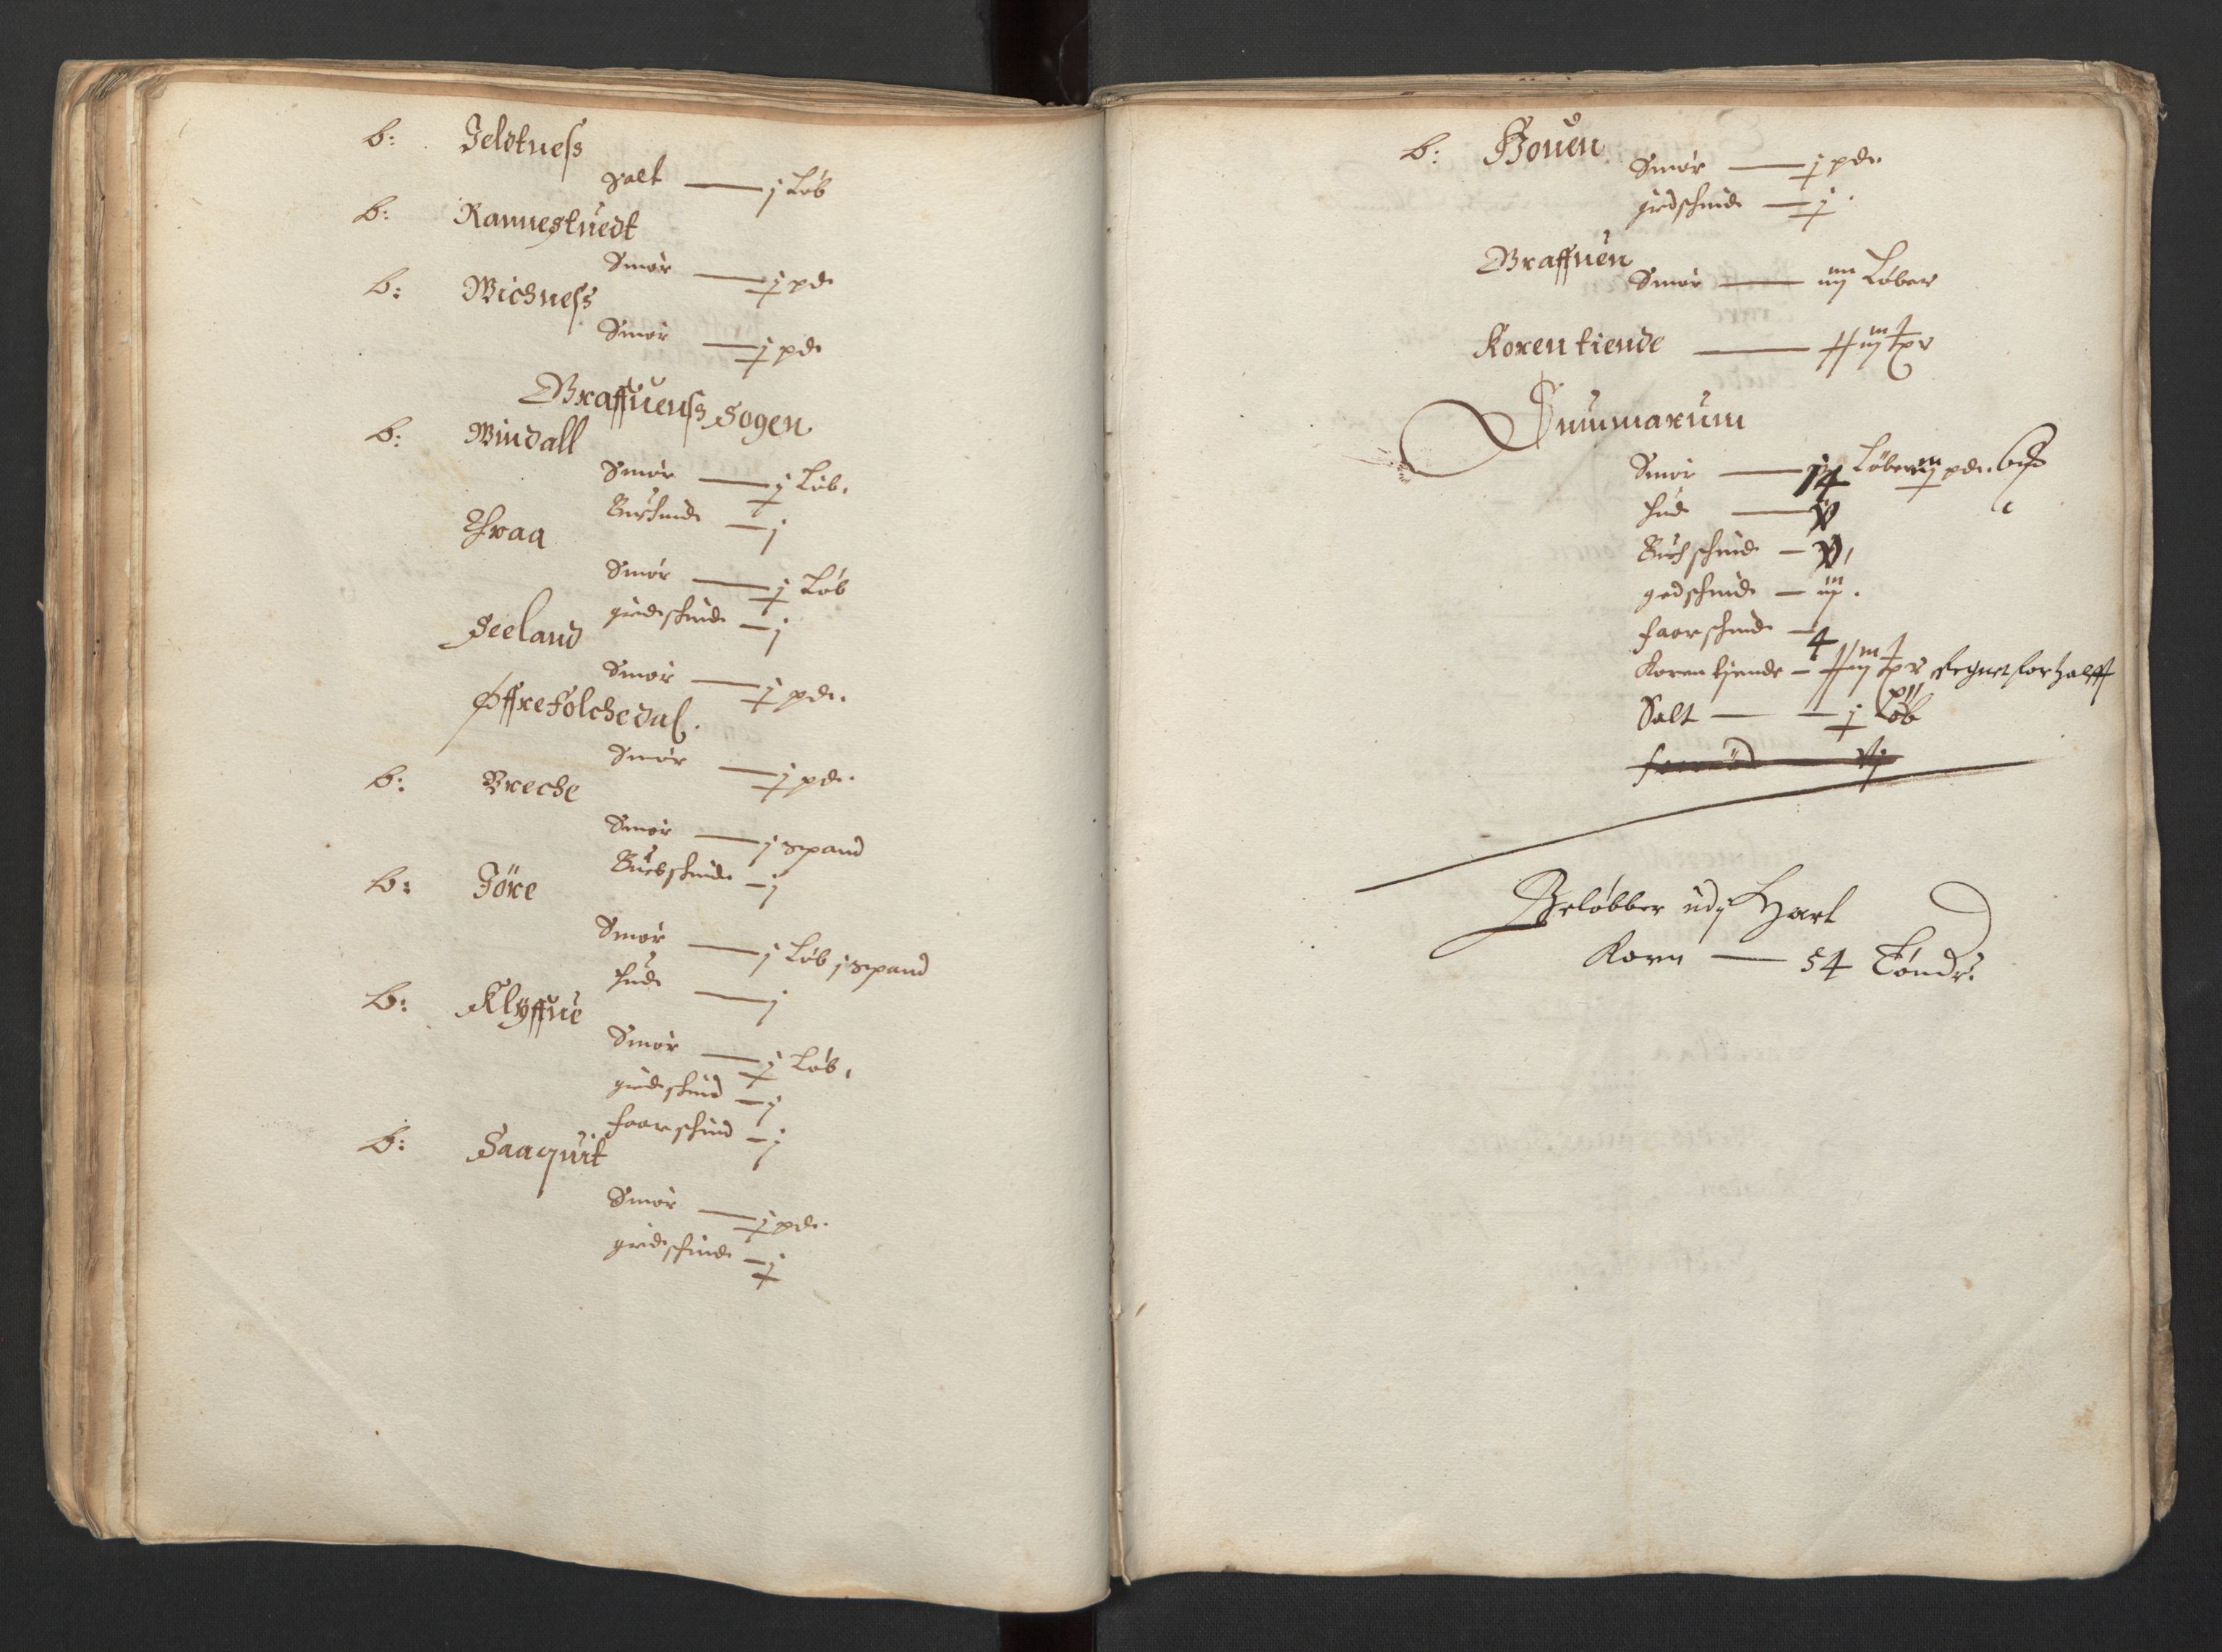 b: Jeldtness
Salt — j Løb
b: Rannestuedt
Smør — j pd
b: Wichness
Smør — j pd
Graffuenss Sogen
b: Windall
Smør — j Løb.
Buckschind — j
Traa
Smør — j Løb
giedeschind — j
Seeland
Smør — j pd.
Øffre Folchedal.
Smør — j pd.
b: Breche
Smør — j spand
Buckschind — j
b: Jöre
Smør — j Løb j spand
Hud — j
b: Klyffue
Smør — j Løb,
giedeschind — j
Faarschind — j
b: Saaquit
Smør — j pd.
giedeschind — j
b: Houen
Smør — j pd.
giedschind — j.
Graffuen
Smør — iiij Løber
Koren tiende
Summarum
Smør — 14 Løber pd.
Hud — V
Buckschind — V,
gedschind — iij.
Faarschind — 4
Koren tjende — Regnet for halfft
Salt — j Løb
Beløbber udj Hart
Korn — 54 Tönder.